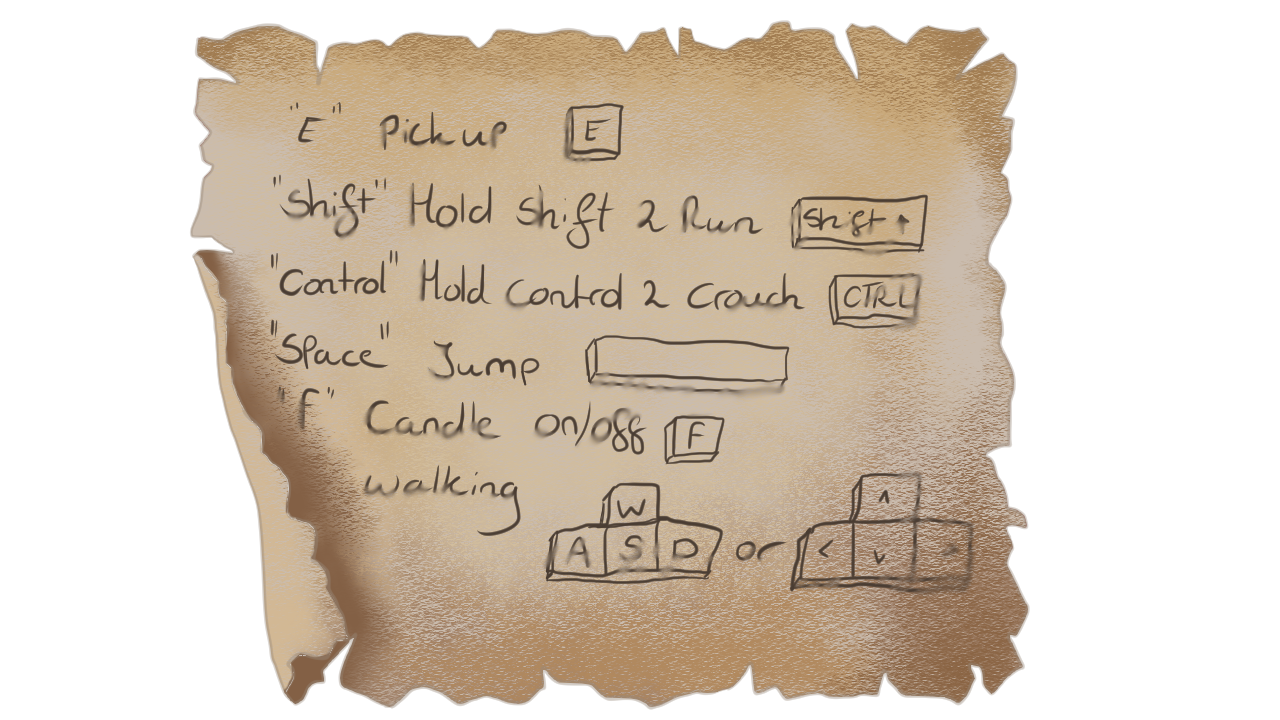 "E" Pick up E
"Shift" Hold Shift 2 Run Shift ↑
"Control" Hold Control 2 Crouch CTRL
"Space" Jump
"F" Candle on/off F
walking
W
A S D or < v >
^